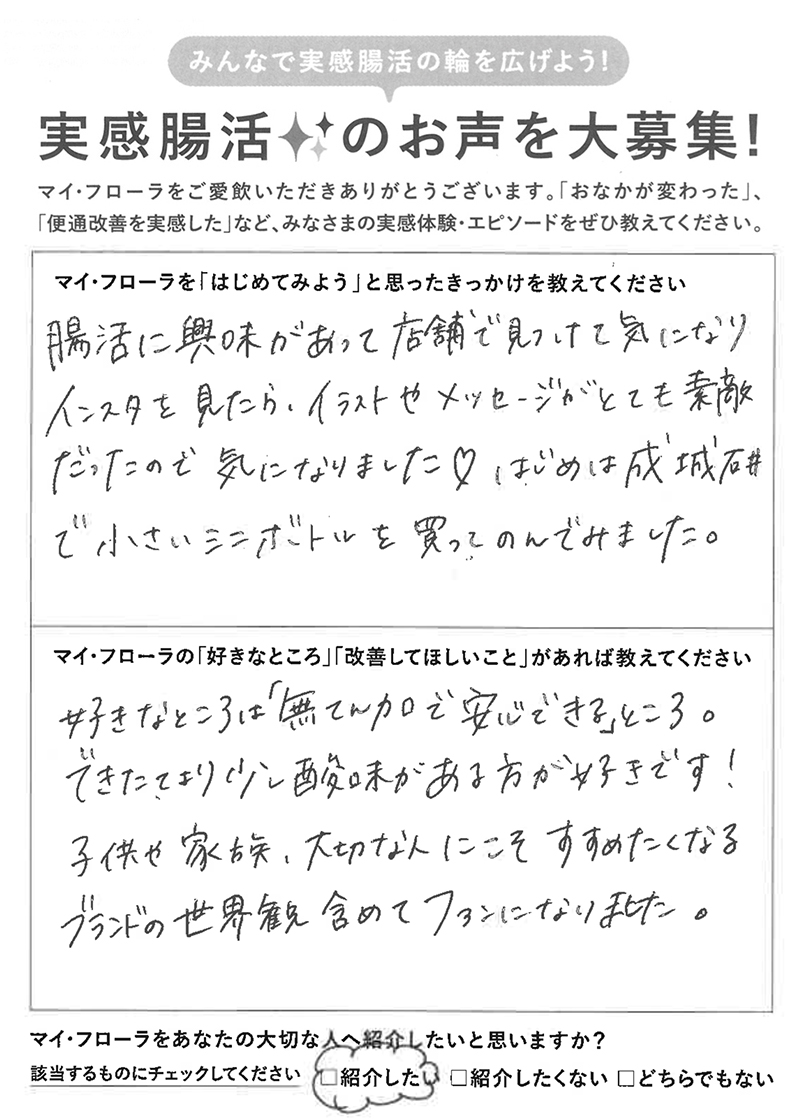 みんなで実感腸活の輪を広げよう!
実感腸活のお声を大募集!
マイ・フローラをご愛飲いただきありがとうございます。「おなかが変わった」、
「便通改善を実感した」など、みなさまの実感体験・エピソードをぜひ教えてください。
マイ・フローラを「はじめてみよう」と思ったきっかけを教えてください
腸活に興味があって店舗で見つけて気になり
インスタを見たら、イラストやメッセージがとても素敵
だったので気になりました♡ はじめは成城石井
で小さいミニボトルを買ってのんでみました。
マイ・フローラの「好きなところ」「改善してほしいこと」があれば教えてください
好きなところは「無てん加で安心できる」ところ。
できたてより少し酸味がある方が好きです!
子供や家族、大切な人にこそすすめたくなる
ブランドの世界観含めてファンになりました。
マイ・フローラをあなたの大切な人へ紹介したいと思いますか?
該当するものにチェックしてください □紹介したい □紹介したくない □どちらでもない